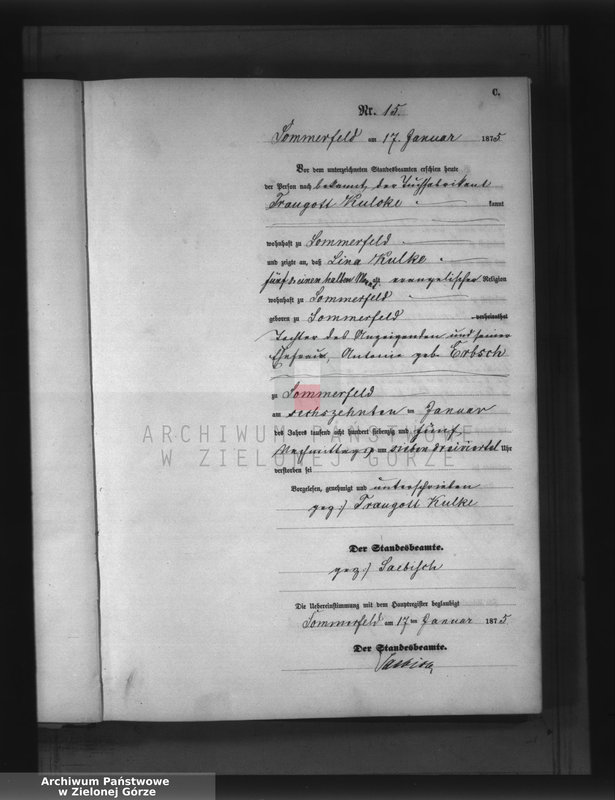 C.
Nr. 15.
Sommerfeld am 17. Januar 1875
Vor dem unterzeichneten Standesbeamten erschien heute
der Person nach bekannt, der Tuchfabrikant
Traugott Kulcke kannt
wohnhaft zu Sommerfeld
und zeigte an, daß Lina Kulke
fünf & einen halben alt, evangelischer Religion
wohnhaft zu Sommerfeld
geboren zu Sommerfeld verheirathet
Tochter des Anzeigenden und seiner
Ehefrau, Antonie geb. Erbsch
zu Sommerfeld
am sechszehnten im Januar
des Jahres tausend acht hundert siebenzig und fünf
Nachmittags um sieben dreiviertel Uhr
verstorben sei
Vorgelesen, genehmigt und unterschrieben
gez.) Traugott Kulke
Der Standesbeamte.
gez.) Saebisch
Die Uebereinstimmung mit dem Hauptregister beglaubigt
Sommerfeld am 17ten Januar 1875.
Der Standesbeamte.
ARCHIWUM PAŃSTWOWE
W ZIELONEJ GÓRZE
Archiwum Państwowe
w Zielonej Górze